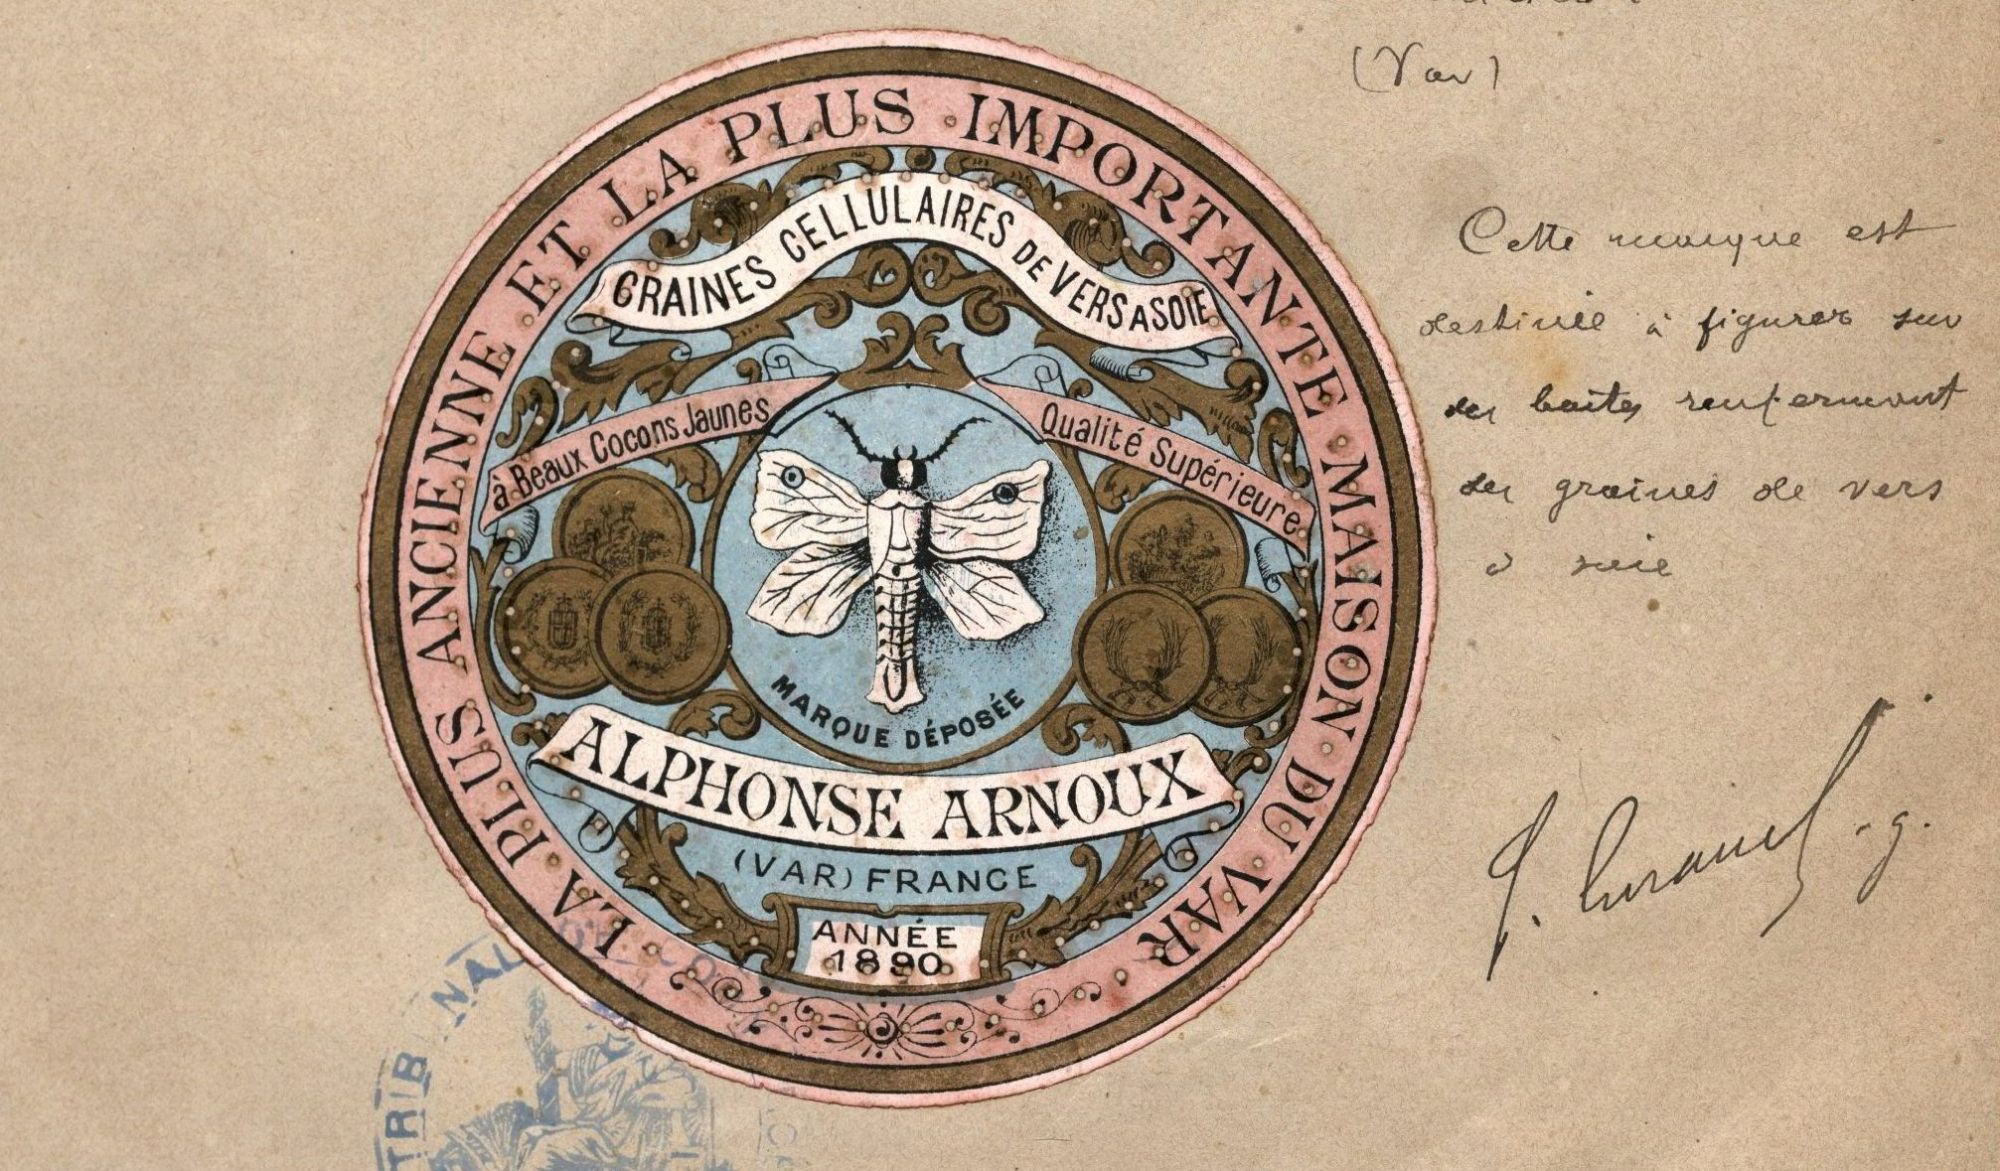 LA PLUS ANCIENNE ET LA PLUS IMPORTANTE MAISON DU VAR
GRAINES CELLULAIRES DE VERS A SOIE
à Beaux Cocons Jaunes
Qualité Supérieure
MARQUE DÉPOSÉE
ALPHONSE ARNOUX
(VAR) FRANCE
ANNÉE
1890
TRIBUNAL DE CO
(Var)
Cette marque est
destinée à figurer sur
des boites renfermant
des graines de vers
à soie